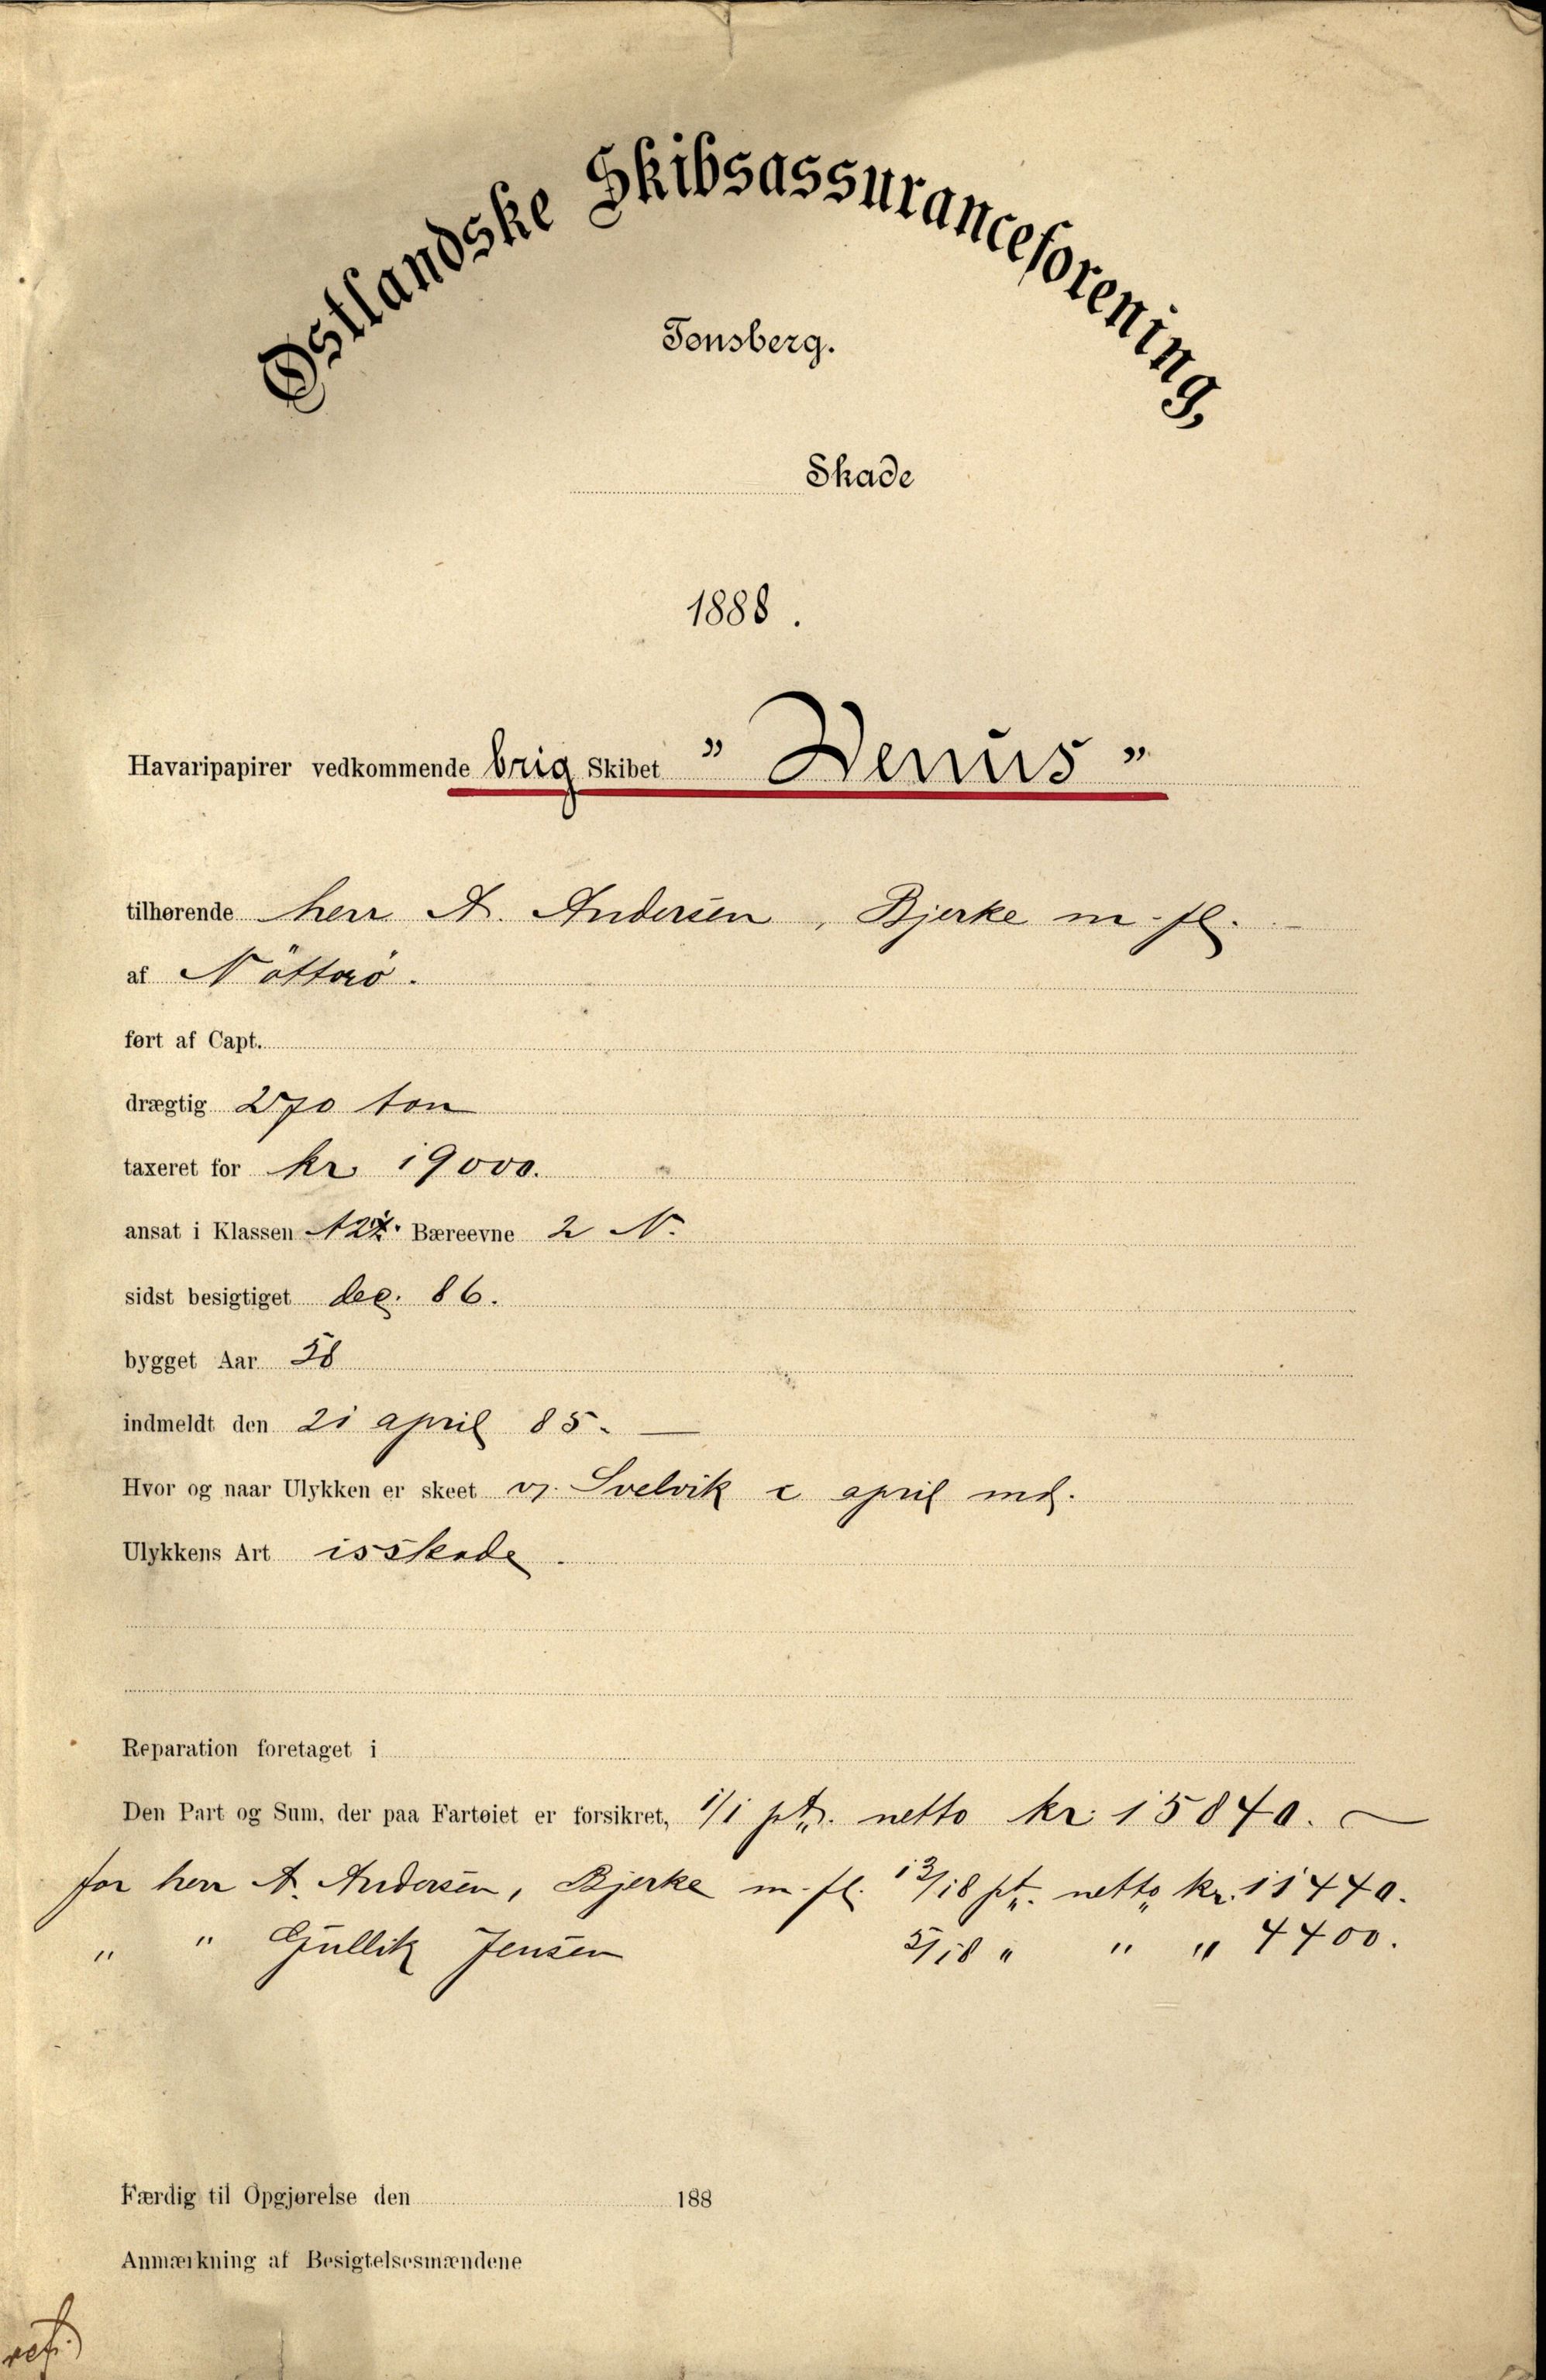 Østlandske Skibsassuranceforening,
Tønsberg.
Skade
1888.
Havaripapirer vedkommende brig Skibet „Venus”
tilhørende herr A. Andersen, Bjerke m. fl.
af Nötterö.
ført af Capt.
drægtig 270 ton
taxeret for kr. 19000.
ansat i Klassen Bæreevne 2 N.
sidst besigtiget dec. 86.
bygget Aar 58
indmeldt den 21 april 85. —
Hvor og naar Ulykken er skeet v. Svelvik i april md.
Ulykkens Art isskade.
Reparation foretaget i
Den Part og Sum, der paa Fartøiet er forsikret, 1/1 pt. netto kr. 15840. —
for herr A. Andersen, Bjerke m. fl. 13/18 pt. netto kr. 11440.
" " Gullik Jensen 5/18 " " " 4400.
Færdig til Opgjørelse den 188
Anmærkning af Besigtelsesmændene